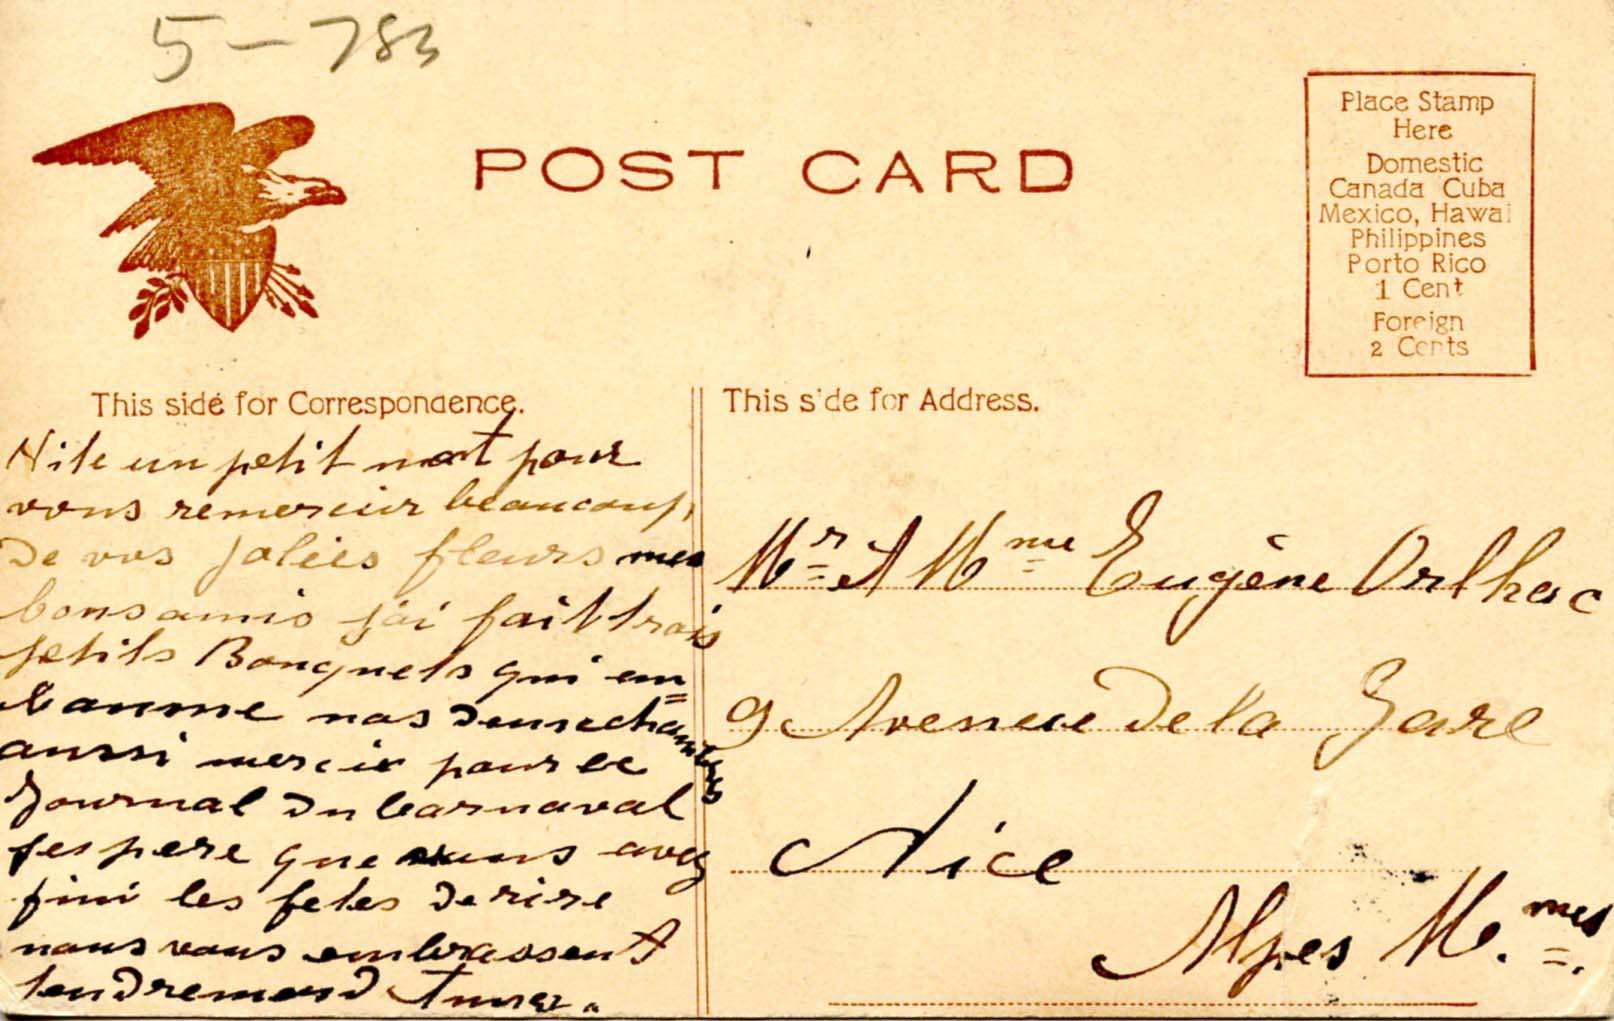 5-783
POST CARD
Place Stamp
Here
Domestic
Canada Cuba
Mexico, Hawai
Philippines
Porto Rico
1 Cent
Foreign
2 Cents
This side for Correspondence.
Vite un petit mot pour
vous remercier beaucoup,
de vos jolies fleurs mes
bons amis j'ai fait trois
petits Bouquets qui em=
baume nos deux chambres
aussi mercie pour le
Journal du Carnaval
j'espere que vous avez
fini les fetes de rire
nous vous embrassent
tendremend
This side for Address.
Mr et Mme Eugène Orlhac
9 Avenue de la Gare
Nice
Alpes M.mes